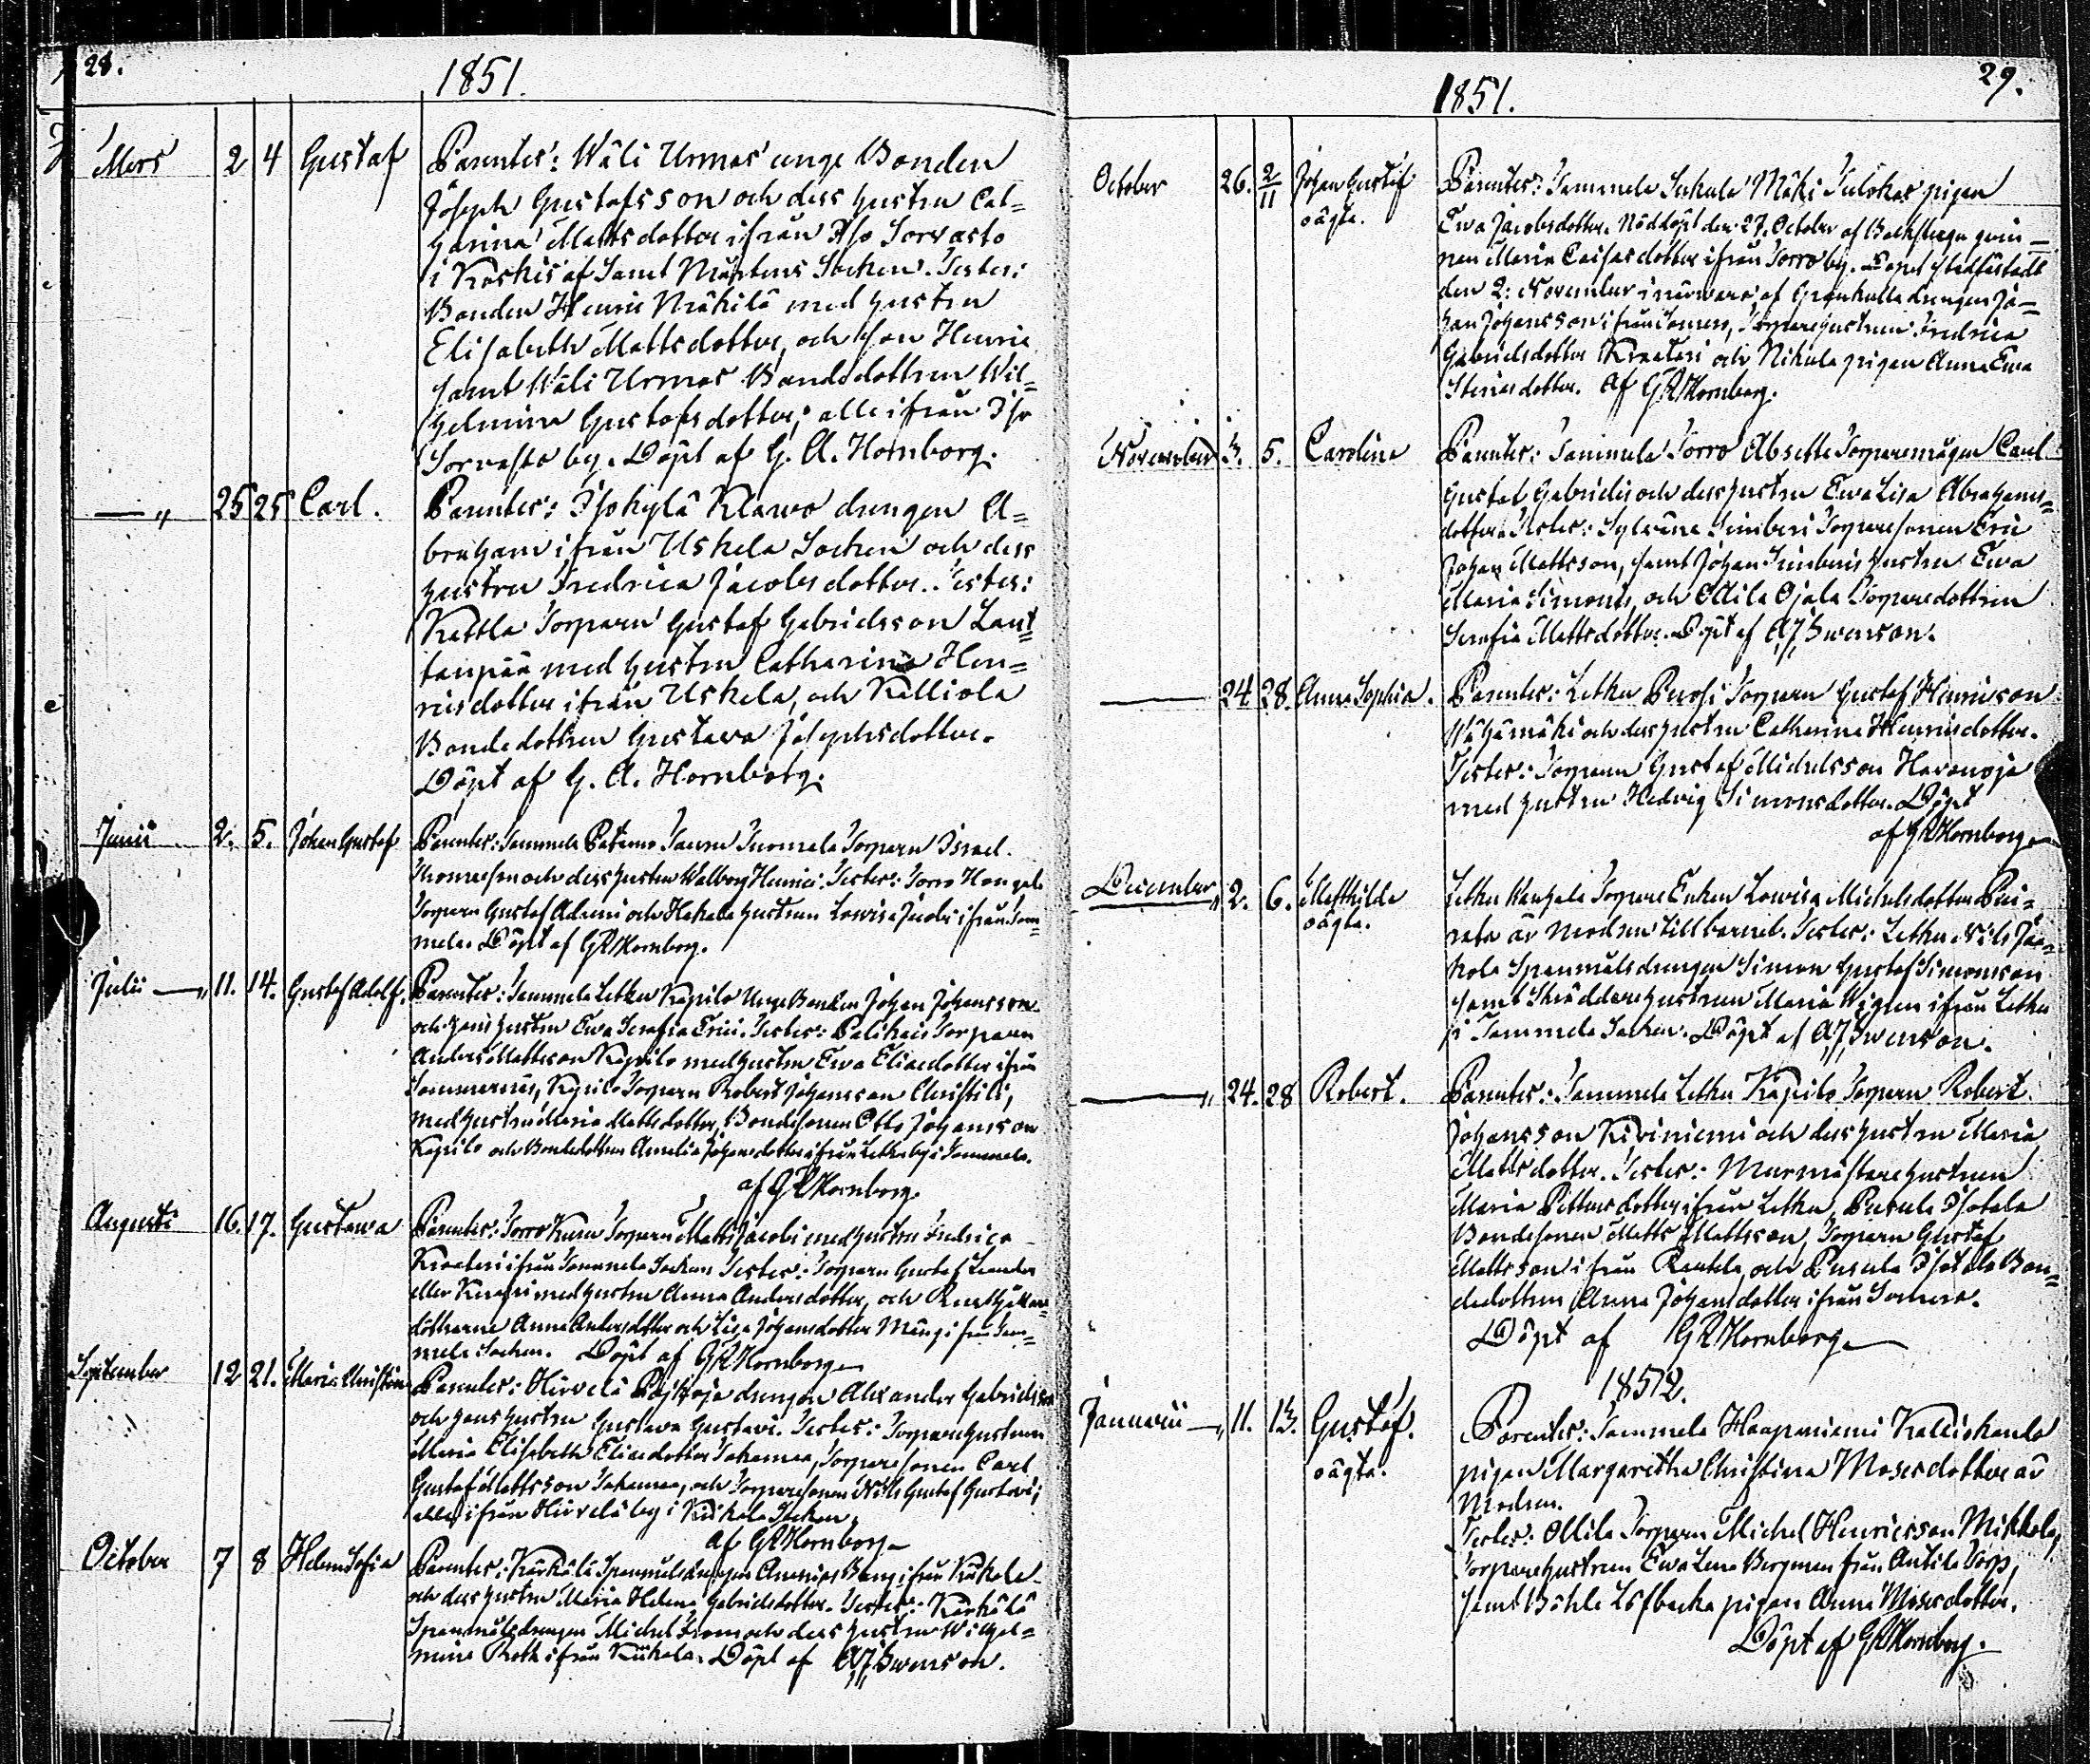 28.
1851.
Mars 2 4 Gustaf Parentes: Wäli Urmas unge Bonden
Joseph Gustafsson och dess hustru Cat=
harina Mattsdotter ifrån Iso Sorvasto
i Koskis af Sanct Mårtens Socken. Testes:
Bonden Henric Mäkilä med hustru
Elisabeth Mattsdotter, och son Henric
samt Wäli Urmas Bondedottren Wil=
helmina Gustafsdotter; alle ifrån Iso
Sorvasto by. Döpt af G. A. Hornborg.
—„ 25 25 Carl. Parentes: Isokylä Klawo drengen A=
braham ifrån Uskela Socken och dess
hustru Fredrica Jacobsdotter. Testes:
Kettla Torparn Gustaf Gabrielsson Laut=
tanpää med hustru Catharina Hen=
ricsdotter ifrån Uskela, och Kalliola
Bondedottren Gustava Josephsdotter.
Döpt af G. A. Hornborg.
Junii 2. 5. Johan Gustaf Parentes: Tammela Torparn Israel
Thomasson och dess hustru Walborg Henrici. Testes: Torro
Torparn Gustaf Adami och Hakala hustrun Lowisa Jacobs ifrån Tam=
mela. Döpt af GAHornborg.
Julii —„ 11. 14. Gustaf Adolf. Parentes: Tammela Letku Kapilo Unge Bonden Johan Johansson
och hans hustru Ewa Serafia Erici. Testes: Torparn
Anders Mattsson Kapilo med hustru Ewa Eliaedotter ifrån
Sommernäs, Kapilo Torparn Robert Johansson
med hustru Maria Mattsdotter, Bondesonen Otto Johansson
Kapilo och Bondedottren Amalia Johansdotter ifrån Letku by i Tammela.
af GAHornborg.
Augusti 16. 17. Gustawa Parentes: Torro Torparn Matts Jacobi med hustru Fredrica
ifrån Tammela Socken Testes: Torparn Gustaf
eller med hustru Anna Andersdotter, och
döttrarne Anna Andersdotter och Lisa Johansdotter ifrån Tam=
mela Socken. Döpt af GAHornborg
September 12 21. Maria Christina Parentes: Hirvelä drengen Alexander Gabrielsson
och hans hustru Gustava Gustavi. Testes: Torparehustrun
Maria Elisabeth Eliaedotter Torparesonen Carl
Gustaf Mattsson och Torparesonen Nils Gustaf Gustavi;
alla ifrån Hirvelä by i Kiikala Socken.
af GAHornborg
October 7 8 Helena Sofia Parentes: Kärkälä Spannmålsdrengen Ananias Berg ifrån Kiikala
och dess hustru Maria Helena Gabrielsdotter. Testes: Kärkälä
Spannmålsdrengen Michel From och dess hustru Wilhel=
mina Roth ifrån Kiikala. Döpt af AJSwenson.
29.
1851.
October 26. 2/11 Johan Gustaf Parentes: Tammela Sukula Mäki pigan
oägta. Ewa Jacobsdotter. Nöddöpt den 27. October af qvin—
nan Maria Caisasdotter ifrån Torro by. Dopet stadfästadt
den 2: November i närvaro af drengen Jo—
han Johansson ifrån Somero, Torparehustrun Fredrica
Gabrielsdotter och Nikula pigan Anna Ewa
Af GAHornborg.
November 3. 5. Carolina Parentes: Tammela Torro Torparemågen Carl
Gustaf Gabrielis och dess hustru Ewa Lisa Abrahams=
dotter. Testes: Torparesonen Eric
Johan Mattsson, samt Johan hustru Ewa
Maria Simonis, och Ollila Ojala Torparedottren
Serafia Mattsdotter. Döpt af AJSwenson.
24 28. Anna Sophia. Parentes: Letku Torparn Gustaf Henricson
Wähämäki och dess hustru Catharina Henricsdotter.
Testes: Torparn Gustaf Michelsson Haranoja
med hustru Hedvig Simonsdotter. Döpt
af GAHornborg
December„ 2. 6. Mathilda Letku Torpare Enkan Lowisa Michelsdotter
oägta. är modren till barnet. Testes: Letku Nils
Spannmålsdrengen Simon Gustaf Simonsson
samt Skräddarehustrun Maria ifrån Letku
i Tammela Socken. Döpt af AJSwenson.
—„ 24. 28 Robert. Parentes: Tammela Letku Kapilo Torparn Robert
Johansson Kiviniemi och dess hustru Maria
Mattsdotter. Testes: Murmästarehustrun
Maria Pettersdotter ifrån Letku, Pusula Isotalo
Bondesonen Matts Mattsson, Torparn Gustaf
Mattsson ifrån Rautela, och Pusula Isotalo Bon=
dedottren Anna Johansdotter ifrån Somero.
Döpt af GAHornborg
1852.
Januarii —„ 11. 13. Gustaf. Parentes: Tammela Haapaniemi
oägta. pigan Margaretha Christina Mosesdotter är
Modren.
Testes: Ollila Torparn Michel Henricsson Mikkola,
Torparehustrun Ewa Lena Bergman från Anttila Torp,
samt pigan Anna Mosesdotter.
Döpt af GAHornborg.